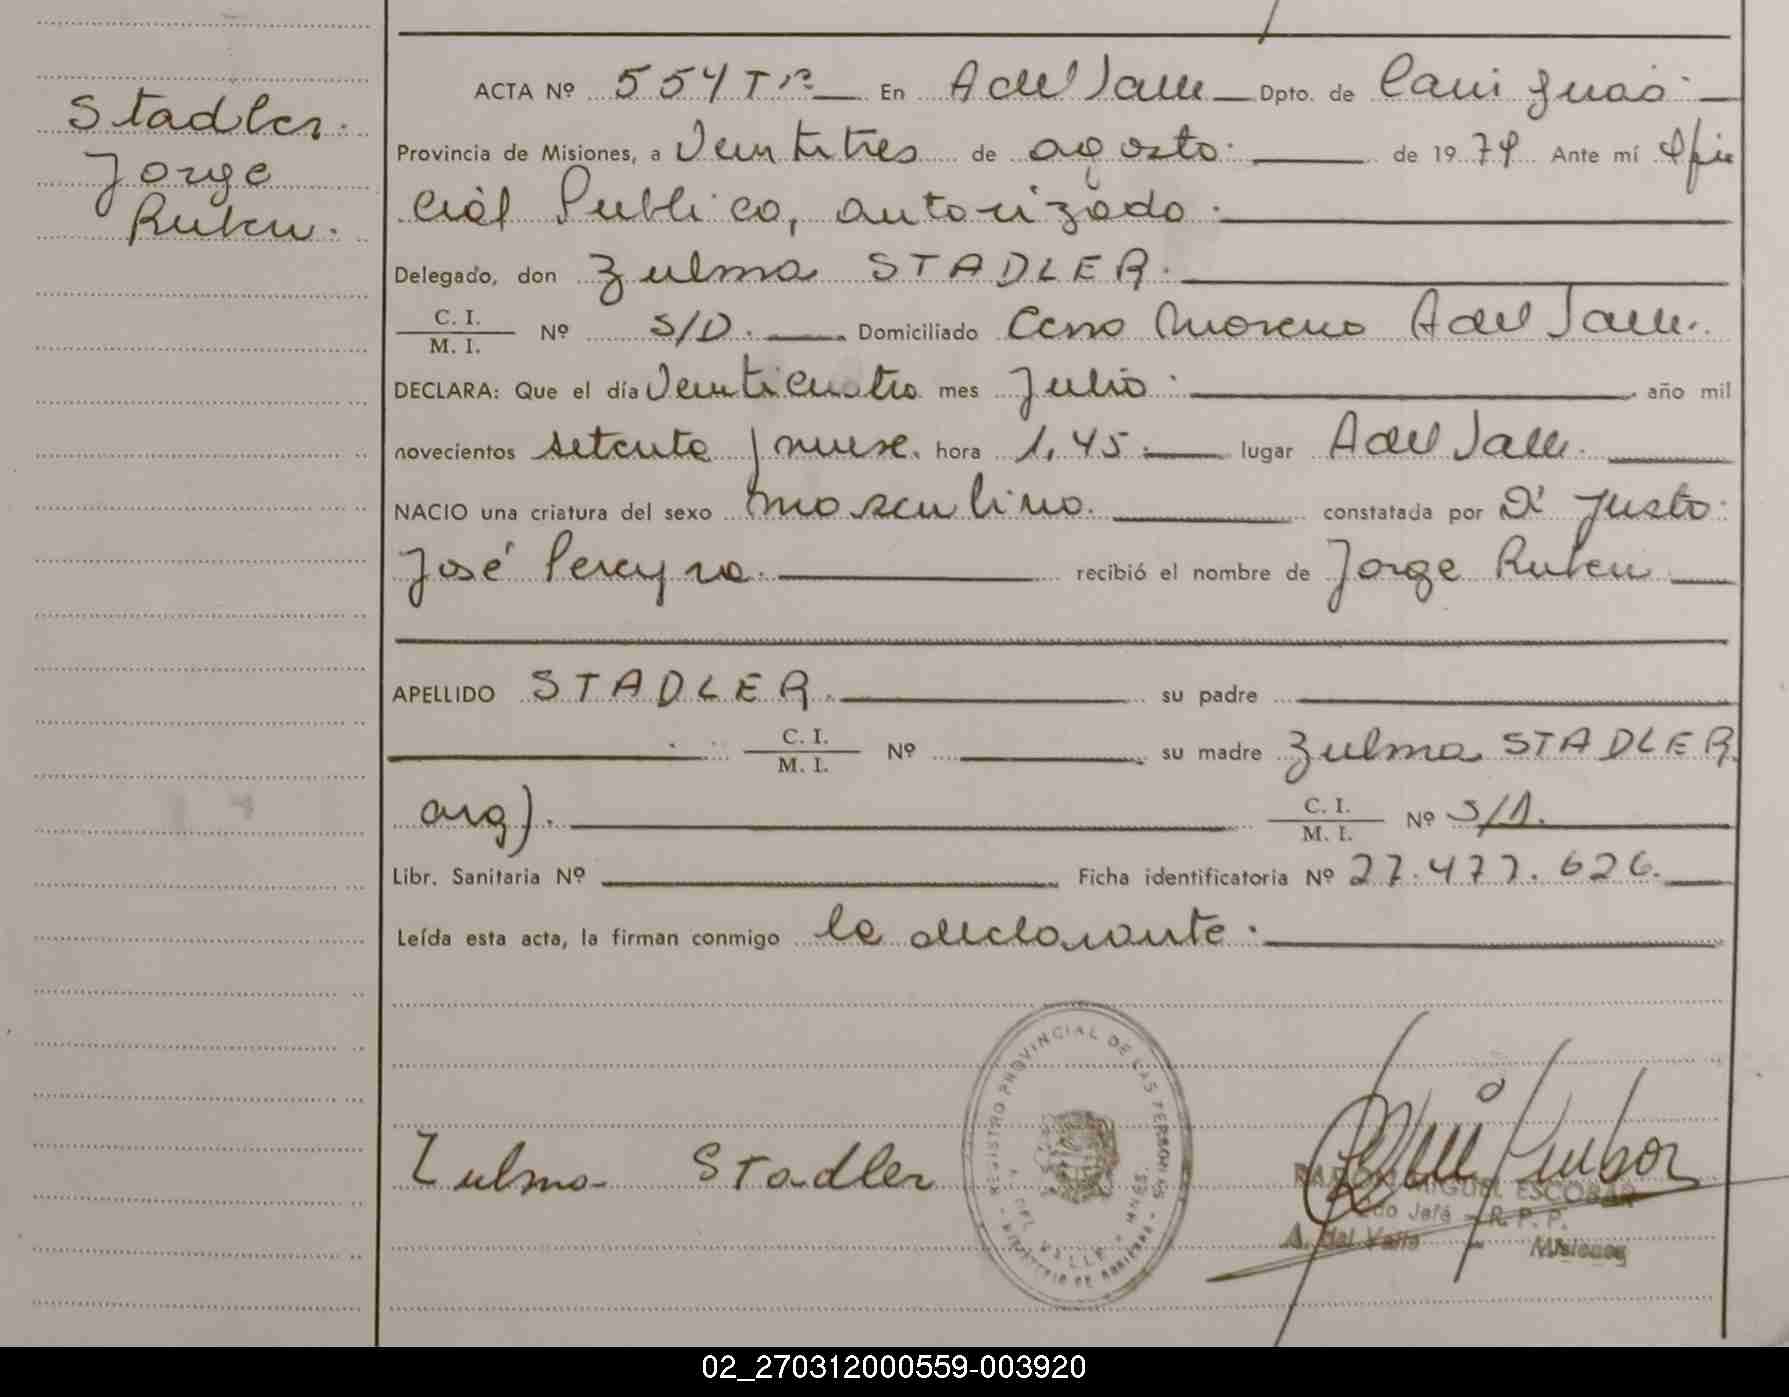 Stadler.
Jorge
Ruben.
ACTA Nº 554 Tº En A del Valle Dpto. de Cainguas
Provincia de Misiones, a Veintitres de agosto. de 1979 Ante mí Ofi
cial Publico, autorizado.
Delegado, don Zulma STADLER.
C. I.
M. I. Nº S/D. Domiciliado Cerro Moreno A del Valle.
DECLARA: Que el día Veinticuatro mes Julio. año mil
novecientos setenta y nueve. hora 1,45. lugar A del Valle.
NACIO una criatura del sexo masculino. constatada por Dr Justo
José Pereyra. recibió el nombre de Jorge Ruben
APELLIDO STADLER. su padre
C. I.
M. I. Nº su madre Zulma STADLER
arg). C. I.
M. I. Nº S/D.
Libr. Sanitaria Nº Ficha identificatoria Nº 27.477.626.
Leída esta acta, la firman conmigo la declarante.
REGISTRO PROVINCIAL DE LAS PERSONAS
A. DEL VALLE - MNES.
MINISTERIO DE
Zulma Stadler
RAMON MIGUEL ESCOBAR
do Jefe - R. P. P.
A. del Valle - Misiones
02_270312000559-003920